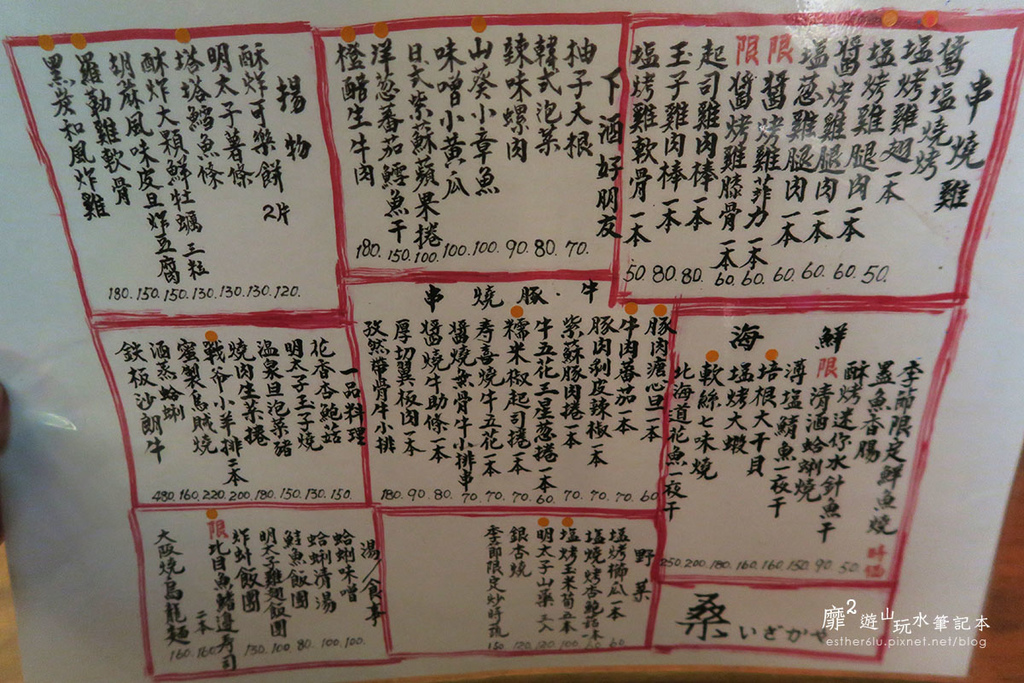 串燒雞
醬塩燒烤
塩烤雞翅一本
塩烤雞腿肉一本
醬烤雞腿肉一本
塩葱雞腿肉一本
限醬烤雞菲力一本
限醬烤雞膝骨一本
起司雞肉棒一本
玉子雞肉棒一本
塩烤雞軟骨一本
50. 60. 60. 60. 60. 60. 80. 80. 50
下酒好朋友
柚子大根
韓式泡菜
辣味螺肉
山葵小章魚
味噌小黃瓜
日式紫蘇蘋果捲
洋葱番茄鱈魚干
橙醋生牛肉
70. 80. 90. 100. 100. 100. 150. 180.
揚物
酥炸可樂餅 2片
明太子薯條
塔塔鱈魚條
酥炸大顆鮮牡蠣三粒
胡蔴風味皮旦炸豆腐
羅勒雞軟骨
黑炭和風炸雞
120. 130. 130. 130. 150. 150. 180.
海鮮
季節限定鮮魚燒
墨魚香腸
酥烤迷你水針魚干
限清酒蛤蜊燒
薄塩鯖魚一夜干
培根大干貝
塩烤大蝦
軟絲七味燒
北海道花魚一夜干
時價 50. 90. 150. 160. 160. 180. 200. 250
串燒豚・牛
豚肉溏心旦一本
牛肉蕃茄一本
豚肉剥皮辣椒一本
紫蘇豚肉捲一本
牛五花三星葱捲一本
糯米椒起司捲一本
寿喜燒牛五花一本
醬燒無骨牛小排串
醬燒牛助條一本
厚切翼板肉一本
孜然帶骨牛小排
60. 70. 70. 70. 60. 70. 70. 70. 80. 90. 180
一品料理
花香杏鮑菇
明太子玉子燒
溫泉旦泡菜豬
燒肉生菜捲
戰爷小羊排二本
蜜製烏賊燒
酒蒸蛤蜊
鉄板沙朗牛
150. 130. 150. 180. 200. 220. 160. 480.
野菜
塩烤櫛瓜一本
塩燒烤杏鮑菇一本
塩烤玉米筍五本
明太子山藥三入
銀杏燒
季節限定炒時蔬
60. 60. 100. 120. 120. 150
湯/食事
蛤蜊味噌
蛤蜊清湯
鮭魚飯團
明太子雞翅飯團
炸蚪飯團
限比目魚鰭邊寿司二本
大阪燒烏龍麵
100. 100. 80. 100. 130. 160. 160.
桑
いざかや
靡²遊山玩水筆記本
esther6lu.pixnet.net/blog